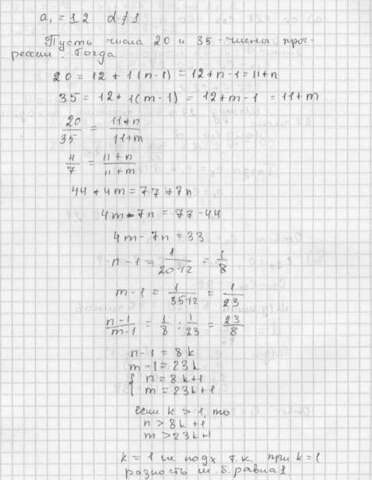 a₁ = 12 d ≠ 1
Пусть числа 20 и 35 - члены прог-
рессии. Тогда
20 = 12 + 1(n-1) = 12+n-1 = 11+n
35 = 12 + 1(m-1) = 12+m-1 = 11+m
20/35 = 11+n/11+m
4/7 = 11+n/11+m
44 + 4m = 77 + 7n
4m - 7n = 77 - 44
4m - 7n = 33
n-1 = 1/20-12 = 1/8
m-1 = 1/35-12 = 1/23
n-1/m-1 = 1/8 : 1/23 = 23/8
n-1 = 8k
m-1 = 23k
{ n = 8k+1
m = 23k+1
если k > 1, то
n > 8k+1
m > 23k+1
k = 1 не подх т.к. при k=1
разность не б. равна 1